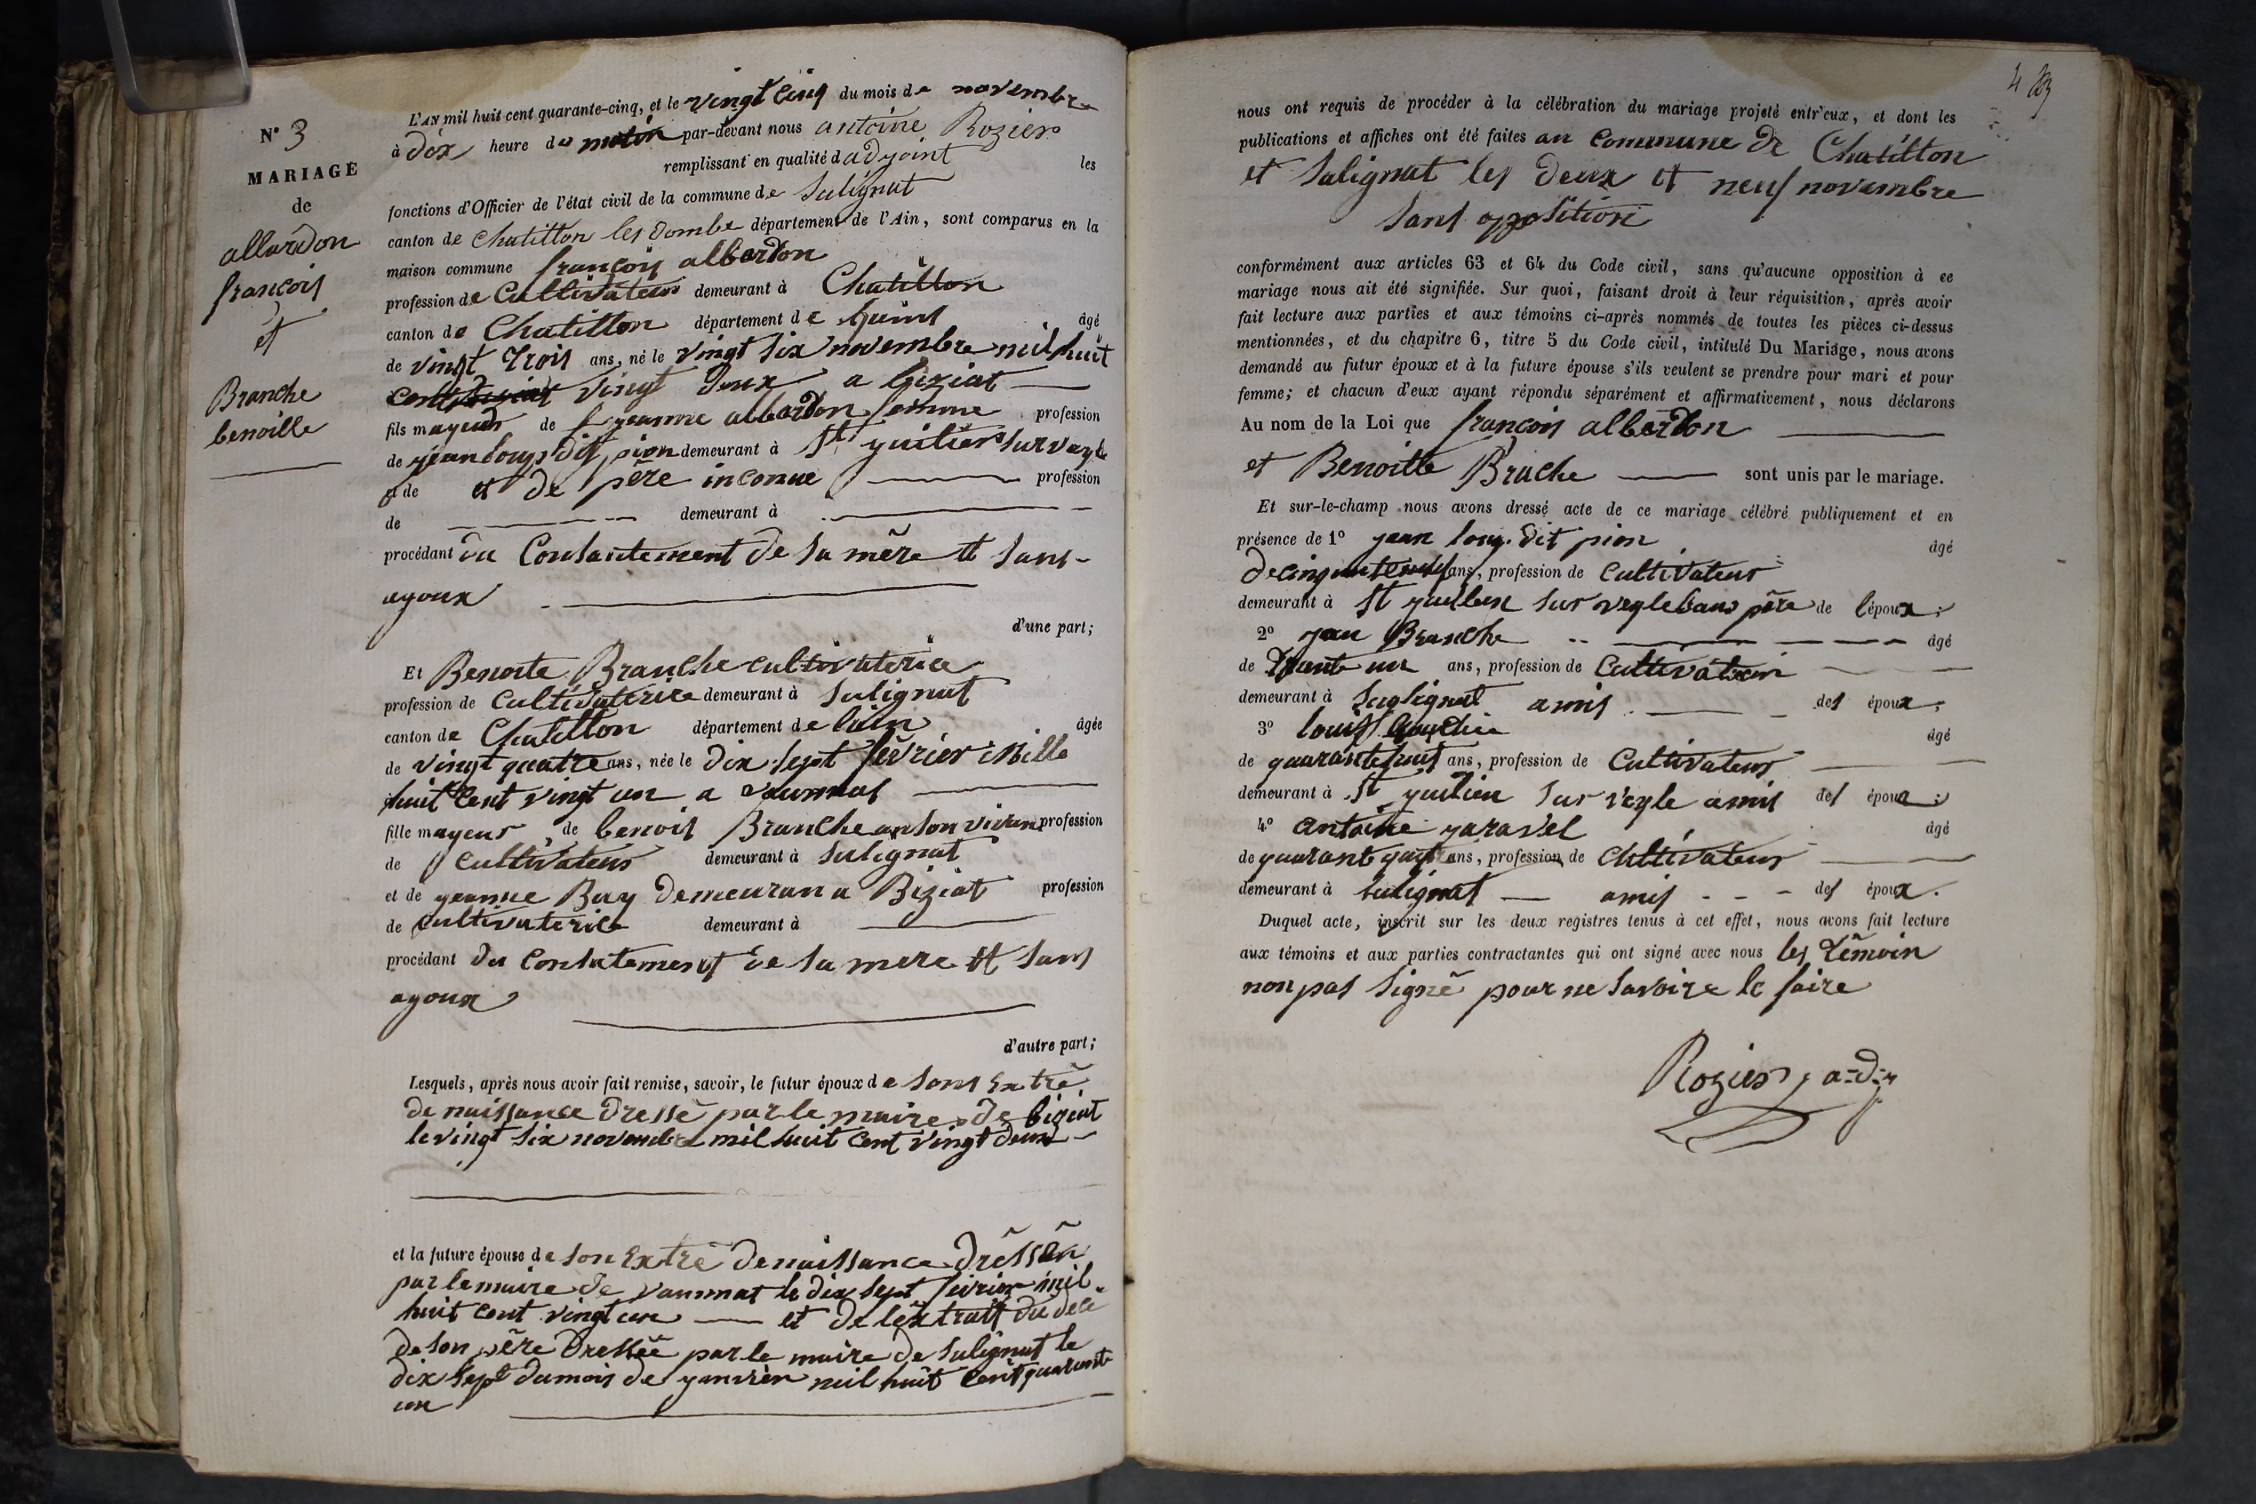 N° 3
MARIAGE
de
allardon
françois
et
Branche
benoille
L'AN mil huit cent quarante-cinq, et le vingt cinq du mois de novembre
à dix heure du matin par-devant nous antoine Rozier
remplissant en qualité d adjoint les
fonctions d'Officier de l'état civil de la commune de Sulignat
canton de chatillon les dombe département de l'Ain, sont comparus en la
maison commune françois albardon
profession de Cultivateur demeurant à Chatillon
canton de Chatillon département de âgé
de vingt trois ans, né le vingt six novembre mil huit
cent vingt deux a biziat
fils mayeur de jeanne albardon femme profession
de jean dit pion demeurant à St sur veyle
et de et de père inconue profession
de demeurant à
procédant du Consantement de sa mère et sans
ayoux
d'une part;
Et Benoite Branche cultivaterice
profession de Cultivaterice demeurant à Sulignat
canton de Chatillon département de lain âgée
de vingt quatre ans, née le dix sept février mille
huit Cent vingt un a
fille mayeur de benoit Branche an son vivan profession
de Cultivateur demeurant à Sulignat
et de jeanne Buy demeuran a Biziat profession
de cultivaterice demeurant à
procédant du de sa mere et sans
ayoux
d'autre part;
Lesquels, après nous avoir fait remise, savoir, le futur époux de sons Extré
de naissance dressé par le maire de biziat
le vingt six novembre mil huit cent vingt deux
et la future épouse de son Extré de naissance
par le maire de vaunnat le dix sept mil
huit cent vingt un et de lextrait du
de son père par le maire de Sulignat le
dix sept du mois de mil huit cent quarante
un
4
nous ont requis de procéder à la célébration du mariage projeté entr'eux, et dont les
publications et affiches ont été faites an commune de Chatillon
et Salignat les deux et neuf novembre
sans opposition
conformément aux articles 63 et 64 du Code civil, sans qu'aucune opposition à ce
mariage nous ait été signifiée. Sur quoi, faisant droit à leur réquisition, après avoir
fait lecture aux parties et aux témoins ci-après nommés de toutes les pièces ci-dessus
mentionnées, et du chapitre 6, titre 5 du Code civil, intitulé Du Mariage, nous avons
demandé au futur époux et à la future épouse s'ils veulent se prendre pour mari et pour
femme; et chacun d'eux ayant répondu séparément et affirmativement, nous déclarons
Au nom de la Loi que françois albardon
et Benoitte Brache sont unis par le mariage.
Et sur-le-champ nous avons dressé acte de ce mariage célébré publiquement et en
présence de 1° jean dit pion âgé
de ans, profession de Cultivateur
demeurant à St sur veyle père de lépoux;
2° Branche âgé
de trante un ans, profession de Cultivateur
demeurant à amis des époux;
3° louis âgé
de quarante huit ans, profession de Cultivateur
demeurant à St sur veyle amis des époux;
4° antoine âgé
de quarante ans, profession de Cultivateur
demeurant à Sulignat amis des époux.
Duquel acte, inscrit sur les deux registres tenus à cet effet, nous avons fait lecture
aux témoins et aux parties contractantes qui ont signé avec nous les témoin
non pas signé pour ne savoire le faire
Rozier